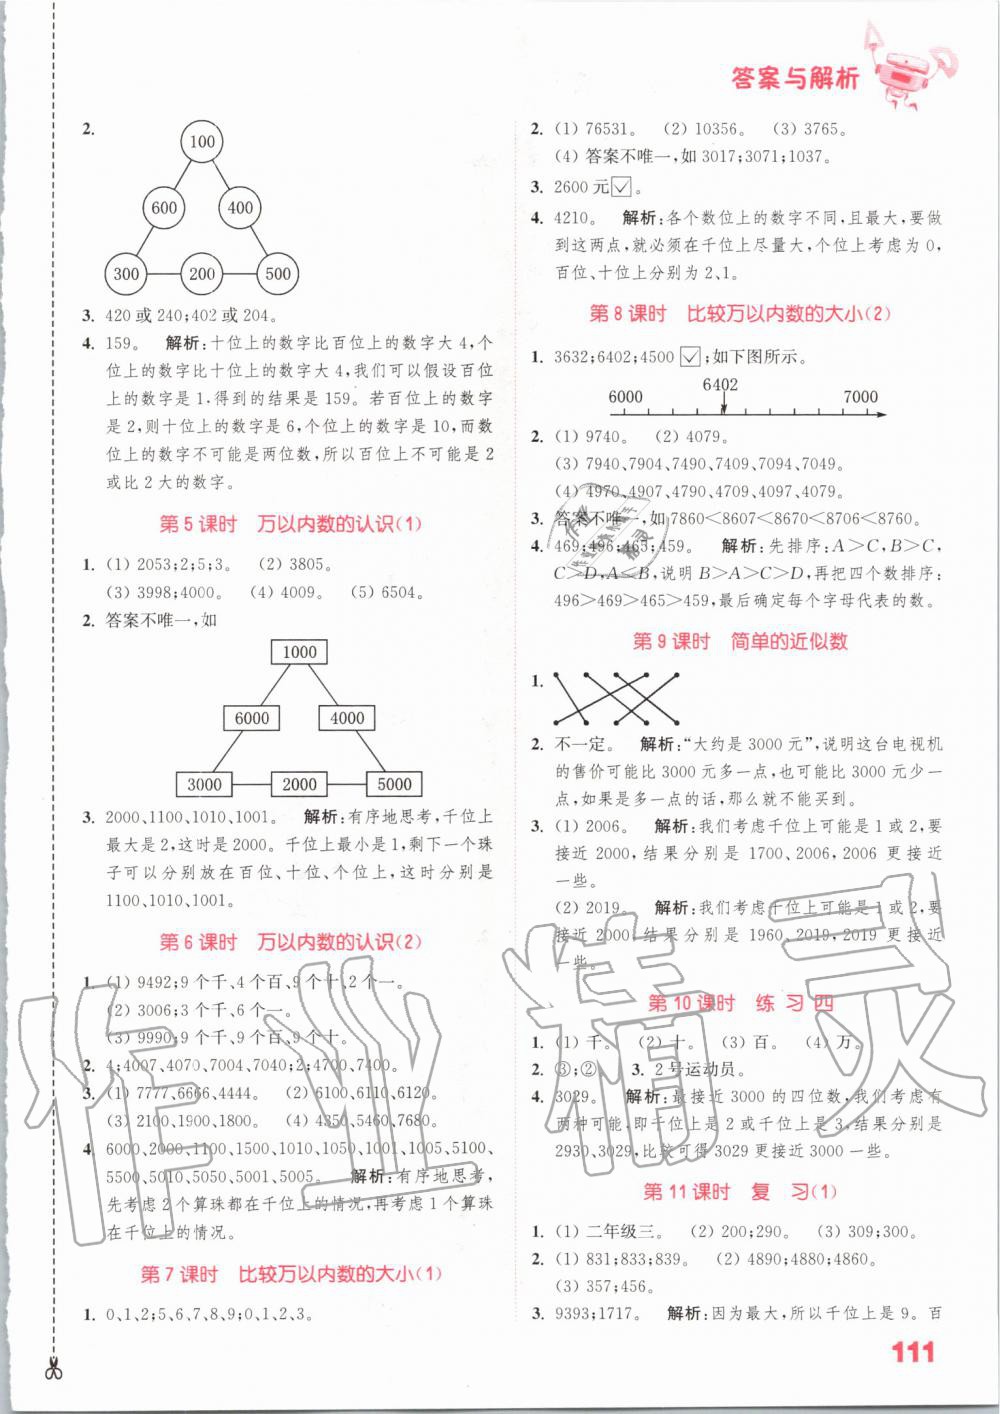 答案与解析
2.
100
600
400
300
200
500
3. 420或240;402或204。
4. 159。 解析:十位上的数字比百位上的数字大4,个
位上的数字比十位上的数字大4,我们可以假设百位
上的数字是1,得到的结果是159。若百位上的数字
是2,则十位上的数字是6,个位上的数字是10,而数
位上的数字不可能是两位数,所以百位上不可能是2
或比2大的数字。
第5课时 万以内数的认识(1)
1. (1) 2053;2;5;3。 (2) 3805。
(3) 3998;4000。 (4) 4009。 (5) 6504。
2. 答案不唯一,如
1000
6000
4000
3000
2000
5000
3. 2000、1100、1010、1001。 解析:有序地思考,千位上
最大是2,这时是2000。千位上最小是1,剩下一个珠
子可以分别放在百位、十位、个位上,这时分别是
1100、1010、1001。
第6课时 万以内数的认识(2)
1. (1) 9492;9个千、4个百、9个十、2个一。
(2) 3006;3个千、6个一。
(3) 9990;9个千、9个百、9个十。
2. 4;4007、4070、7004、7040;2;4700、7400。
3. (1) 7777、6666、4444。 (2) 6100、6110、6120。
(3) 2100、1900、1800。 (4) 4350、5460、7680。
4. 6000、2000、1100、1500、1010、1050、1001、1005、5100、
5500、5010、5050、5001、5005。 解析:有序地思考,
先考虑2个算珠都在千位上的情况,再考虑1个算珠
在千位上的情况。
第7课时 比较万以内数的大小(1)
1. 0、1、2;5、6、7、8、9;0、1、2、3。
2. (1) 76531。 (2) 10356。 (3) 3765。
(4) 答案不唯一,如3017;3071;1037。
3. 2600元☑。
4. 4210。 解析:各个数位上的数字不同,且最大,要做
到这两点,就必须在千位上尽量大,个位上考虑为0,
百位、十位上分别为2、1。
第8课时 比较万以内数的大小(2)
1. 3632;6402;4500☑;如下图所示。
6402
6000
7000
2. (1) 9740。 (2) 4079。
(3) 7940、7904、7490、7409、7094、7049。
(4) 4970、4907、4790、4709、4097、4079。
3. 答案不唯一,如7860<8607<8670<8706<8760。
4. 469;496;465;459。 解析:先排序:A>C,B>C,
C>D,A<B,说明B>A>C>D,再把四个数排序:
496>469>465>459,最后确定每个字母代表的数。
第9课时 简单的近似数
1.
2. 不一定。 解析:“大约是3000元”,说明这台电视机
的售价可能比3000元多一点,也可能比3000元少一
点,如果是多一点的话,那么就不能买到。
3. (1) 2006。 解析:我们考虑千位上可能是1或2,要
接近2000,结果分别是1700、2006,2006更接近
一些。
(2) 2019。 解析:我们考虑千位上可能是1或2,要
接近2000,结果分别是1960、2019,2019更接近
一些。
第10课时 练习四
1. (1) 千。 (2) 十。 (3) 百。 (4) 万。
2. ③;② 3. 2号运动员。
4. 3029。 解析:最接近3000的四位数,我们考虑有
两种可能,即千位上是2或千位上是3,结果分别是
2930、3029,比较可得3029更接近3000一些。
第11课时 复 习(1)
1. (1) 二年级三。 (2) 200;290。 (3) 309;300。
2. (1) 831;833;839。 (2) 4890;4880;4860。
(3) 357;456。
3. 9393;1717。 解析:因为最大,所以千位上是9。百
111
作业精灵